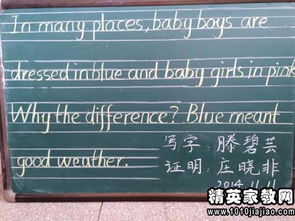 In many places, baby boys are
dressed in blue and baby girls in pink
Why the difference? Blue meant
good weather.
写字：滕碧芸
证明：庄晓非
2014.11.11
精英家教网
www.1010jiajiao.com